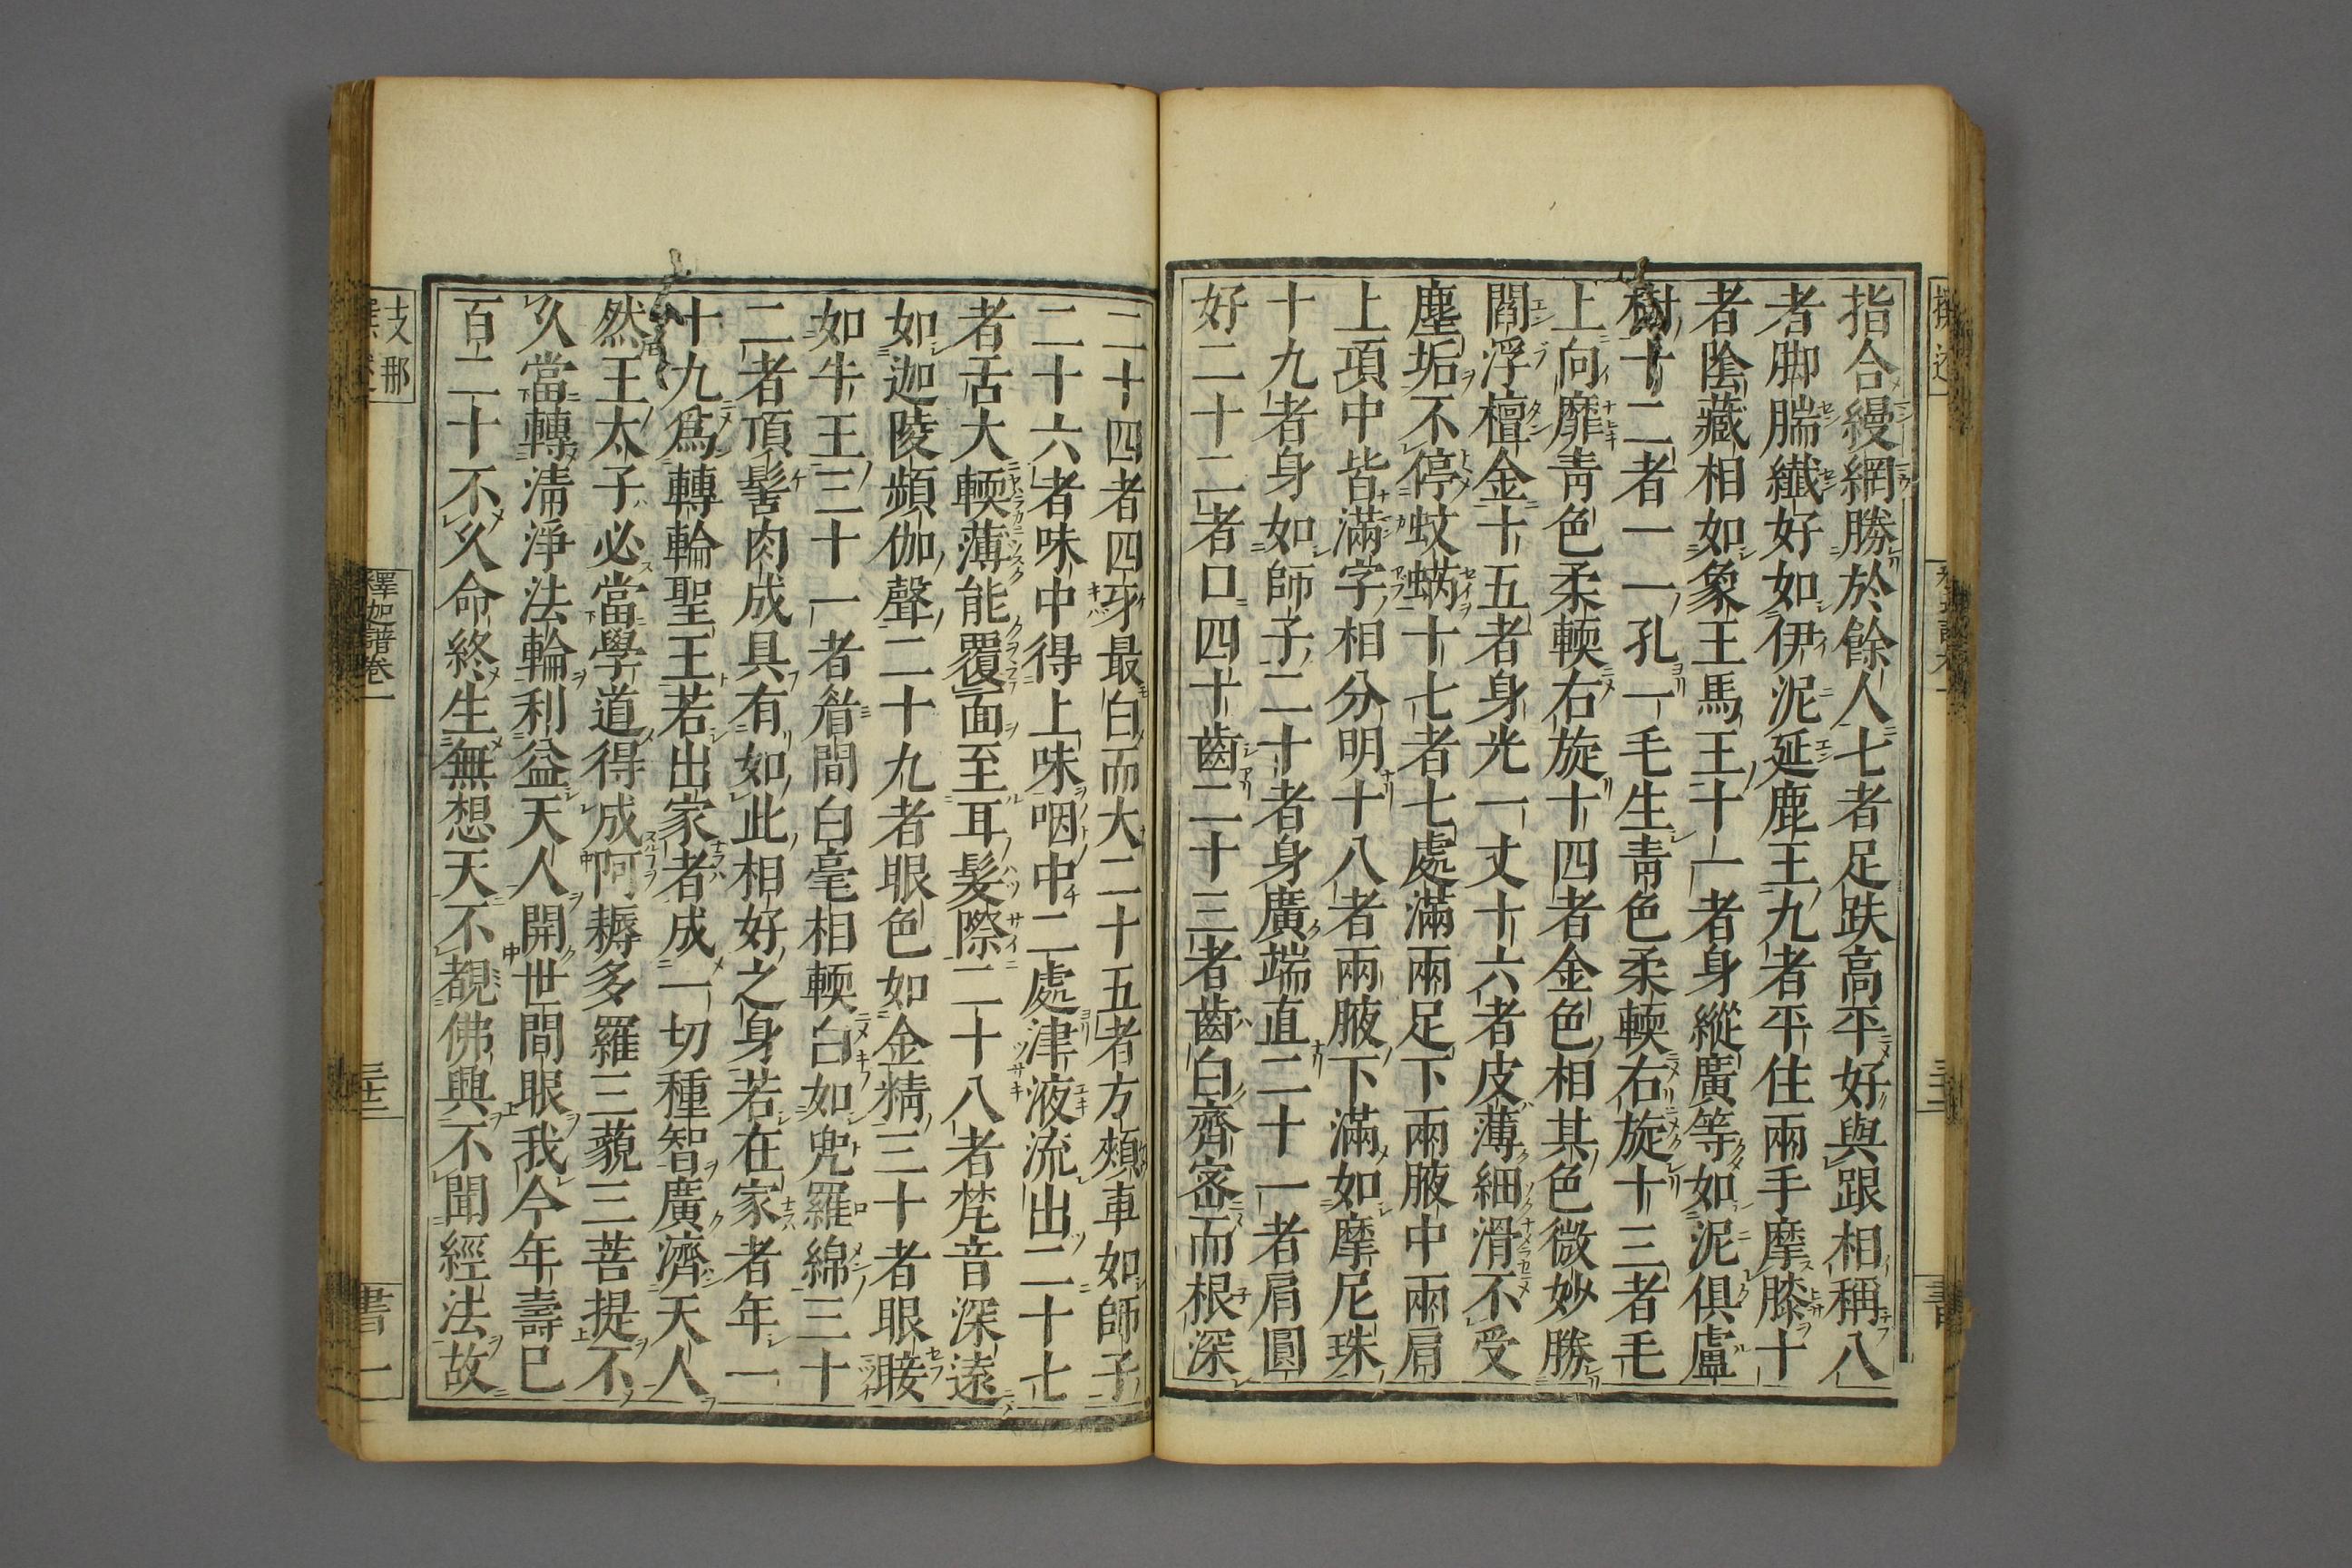 指合縵網勝於餘人七者足趺高平好與跟相稱八
者脚腨纖好如伊泥延鹿王九者平住兩手摩膝十
者陰藏相如象王馬王十一者身縱廣等如泥俱盧
樹十二者一一孔一毛生青色柔輭右旋十三者毛
上向靡青色柔輭右旋十四者金色相其色微妙勝
閻浮檀金十五者身光一丈十六者皮薄細滑不受
塵垢不停蚊蜹十七者七處滿兩足下兩腋中兩肩
上項中皆滿字相分明十八者兩腋下滿如摩尼珠
十九者身如師子二十者身廣端直二十一者肩圓
好二十二者口四十齒二十三者齒白齊密而根深
二十四者四牙最白而大二十五者方頰車如師子
二十六者味中得上味咽中二處津液流出二十七
者舌大輭薄能覆面至耳髮際二十八者梵音深遠
如迦陵頻伽聲二十九者眼色如金精三十者眼睫
如牛王三十一者眉間白毫相輭白如兜羅綿三十
二者頂髻肉成具有如此相好之身若在家者年一
十九爲轉輪聖王若出家者成一切種智廣濟天人
然王太子必當學道得成阿耨多羅三藐三菩提不
久當轉淸淨法輪利益天人開世間眼我今年壽已
百二十不久命終生無想天不覩佛興不聞經法故
支那
撰述
釋迦譜卷一
三十二
書一